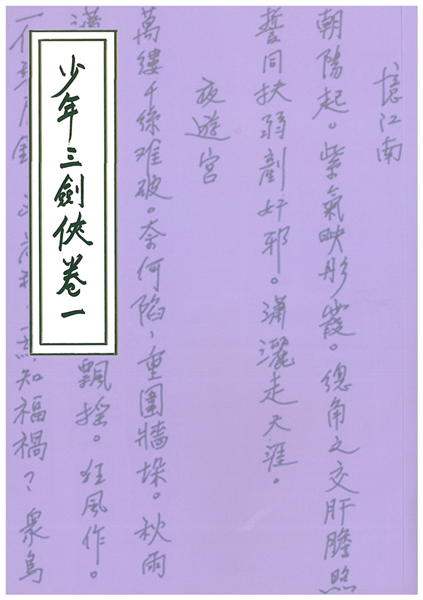 少年三劍俠卷一
憶江南
朝陽起。紫氣映彤霞。總角之交肝膽照
誓同扶弱剷奸邪。瀟灑走天涯。
夜遊宮
萬縷千絲难破。奈何陷，重圍牆垛。秋雨
飄搖。狂風作。
知福禍？衆鳥